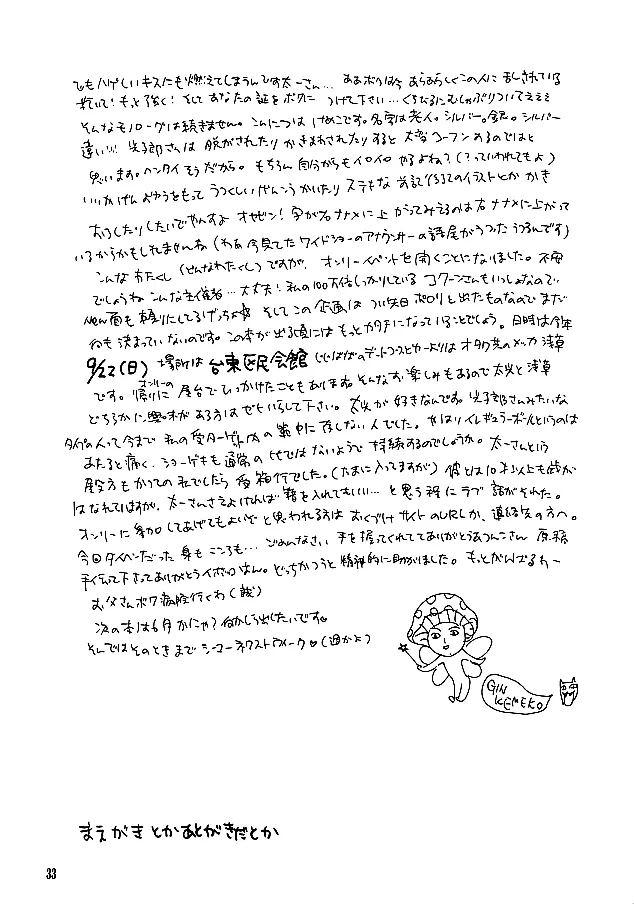 でもハゲしいキスにも燃えてしまうんです太一さん… ああボクは今 あらあらしくこの人に 愛されている
もっと強く! そして あなたの証をボクに つけて下さい…くちびるにむしゃぶりついてえええ
そんなモノローグは続きません。こんにちは けめこです。名字は老人。シルバー。銀。シルバー
違い!!! 光子郎さんは 脱がされたり かきまわされたり すると 大変コーフン するのではと
思います。ヘンタイ そうだから。もちろん 自分からもイロイロ やるよね?(?っていわれてもよ)
いいかげん ようきをもって うつくしいげんこう かいたり ステキな のイラストとか かき
おろしたり したいでやんすよ オヤビン! 字が右ナナメに上がってみえるのは右ナナメに上がって
いるからかもしれませんね(わあ 今見てた ワイドショーのアナウンサーの語尾がうつった うつるんです)
こんな わたくし(どんなわたくし)ですが、オンリーイベントを開くことになりました。不安
でしょうね こんな主催者…大丈夫!私の100万倍しっかりしている コクーンさんもいっしょなので…
そして この企画は つい先日 ポロリと出たものなので まだ
何も決まっていないのです。この本が出る頃には もっとカタチになっていることでしょう。日時は今年
9/22(日) 場所は 台東区民会館 オタクのメッカ 浅草
です。オンリーの帰りに 屋台で ひっかけたことも あります そんなお楽しみもあるので 太光と浅草
どちらかに興味がある方は ぜひいらして下さい。太光が好きなんです。光子郎さんみたいな
タイプの人って今まで 私の受ターゲット内の 範中に 存しない人でした。やはりイレギュラーボールというのは
あたると痛く、ショーゲキも通常の 比ではないようで 持続するのでしょうか。太一さんという
攻方も かつての 私でしたら 受 行でした。(たまに入ってますが) 彼とは10才以上も歳が
はなれていますが、太一さんさえよければ 籍を入れてもいい…と思う程にラブ 話がそれた。
オンリーに 参加してあげてもよいぞ と思われる方は おくづけ サイトのURLか、連絡先の方へ。
今回タイヘンだった 身も こころも… ごめんなさい 手を握ってくれててありがとうあつんこさん 原稿
手伝って下さってありがとうイボロはん。どっちかっつうと 精神的に助かりました。もっとがんばるわー
お父さんボク病院行くわ(誠)
次の本は6月かにゃ? 何かしら出したいです。
そんではそのときまで シーユーネクストウィーク♡(週かよ)
GIN KEMEKO
まえがき とか あとがき だとか
33